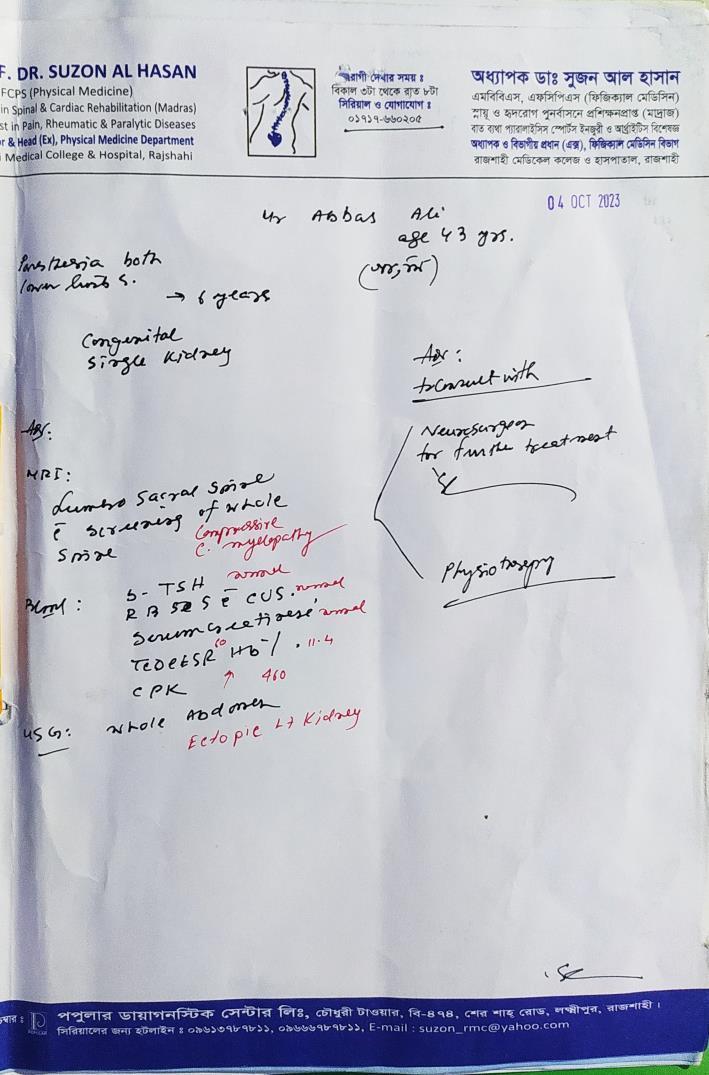 F. DR. SUZON AL HASAN
FCPS (Physical Medicine)
in Spinal & Cardiac Rehabilitation (Madras)
st in Pain, Rheumatic & Paralytic Diseases
r & Head (Ex), Physical Medicine Department
i Medical College & Hospital, Rajshahi
রোগী দেখার সময় :
বিকাল ৩টা থেকে রাত ৮টা
সিরিয়াল ও যোগাযোগ :
০১৭১৭-৬৬০২০৫
অধ্যাপক ডাঃ সুজন আল হাসান
এমবিবিএস, এফসিপিএস (ফিজিক্যাল মেডিসিন)
স্নায়ু ও হৃদরোগ পুনর্বাসনে প্রশিক্ষনপ্রাপ্ত (মাদ্রাজ)
বাত ব্যথা প্যারালাইসিস স্পোর্টস ইনজুরী ও আর্থ্রাইটিস বিশেষজ্ঞ
অধ্যাপক ও বিভাগীয় প্রধান (এক্স), ফিজিক্যাল মেডিসিন বিভাগ
রাজশাহী মেডিকেল কলেজ ও হাসপাতাল, রাজশাহী
04 OCT 2023
Mr Abbas Ali
age 43 yrs.
both
lower limbs.
→ 6 years
Congenital
Single Kidney
Adv:
to consult with
Neurosurgeon
for further treatment
Physiotherapy
Adv:
MRI:
Lumbo Sacral Spine
c̄ screening of whole
Spine
Compressive
C. myelopathy
Blood: S-TSH normal
RBS c̄ CUS. normal
Serum creatinine normal
TC DC ESR Hb% 11.4
CPK ↑ 460
USG: Whole Abdomen
Ectopic Lt Kidney
পপুলার ডায়াগনস্টিক সেন্টার লিঃ, চৌধুরী টাওয়ার, বি-৪৭৪, শের শাহ্ রোড, লক্ষ্মীপুর, রাজশাহী ।
সিরিয়ালের জন্য হটলাইন : ০৯৬১৩৭৮৭৮১১, ০৯৬৬৬৭৮৭৮১১, E-mail : suzon_rmc@yahoo.com